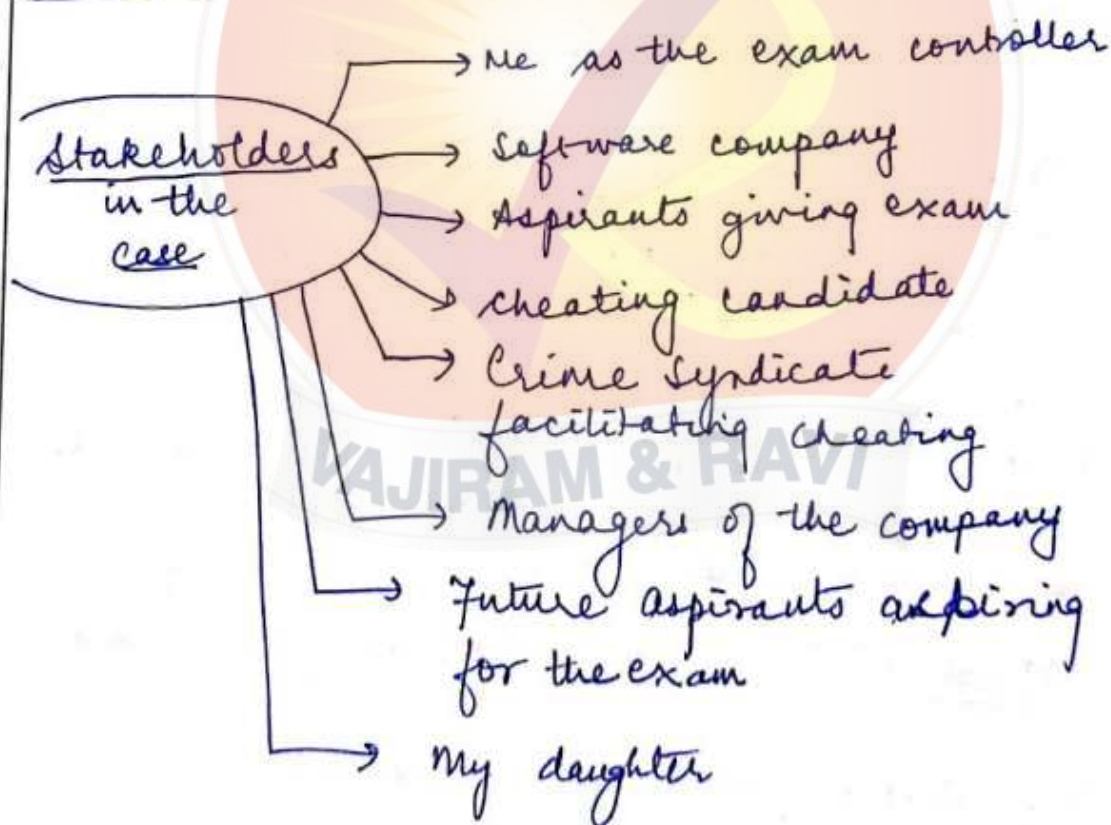 Me as the exam controller
Stakeholders
in the
case
Software company
Aspirants giving exam
cheating candidate
Crime Syndicate
facilitating cheating
VAJIRAM & RAVI
Managers of the company
Future aspirants aspiring
for the exam
My daughter